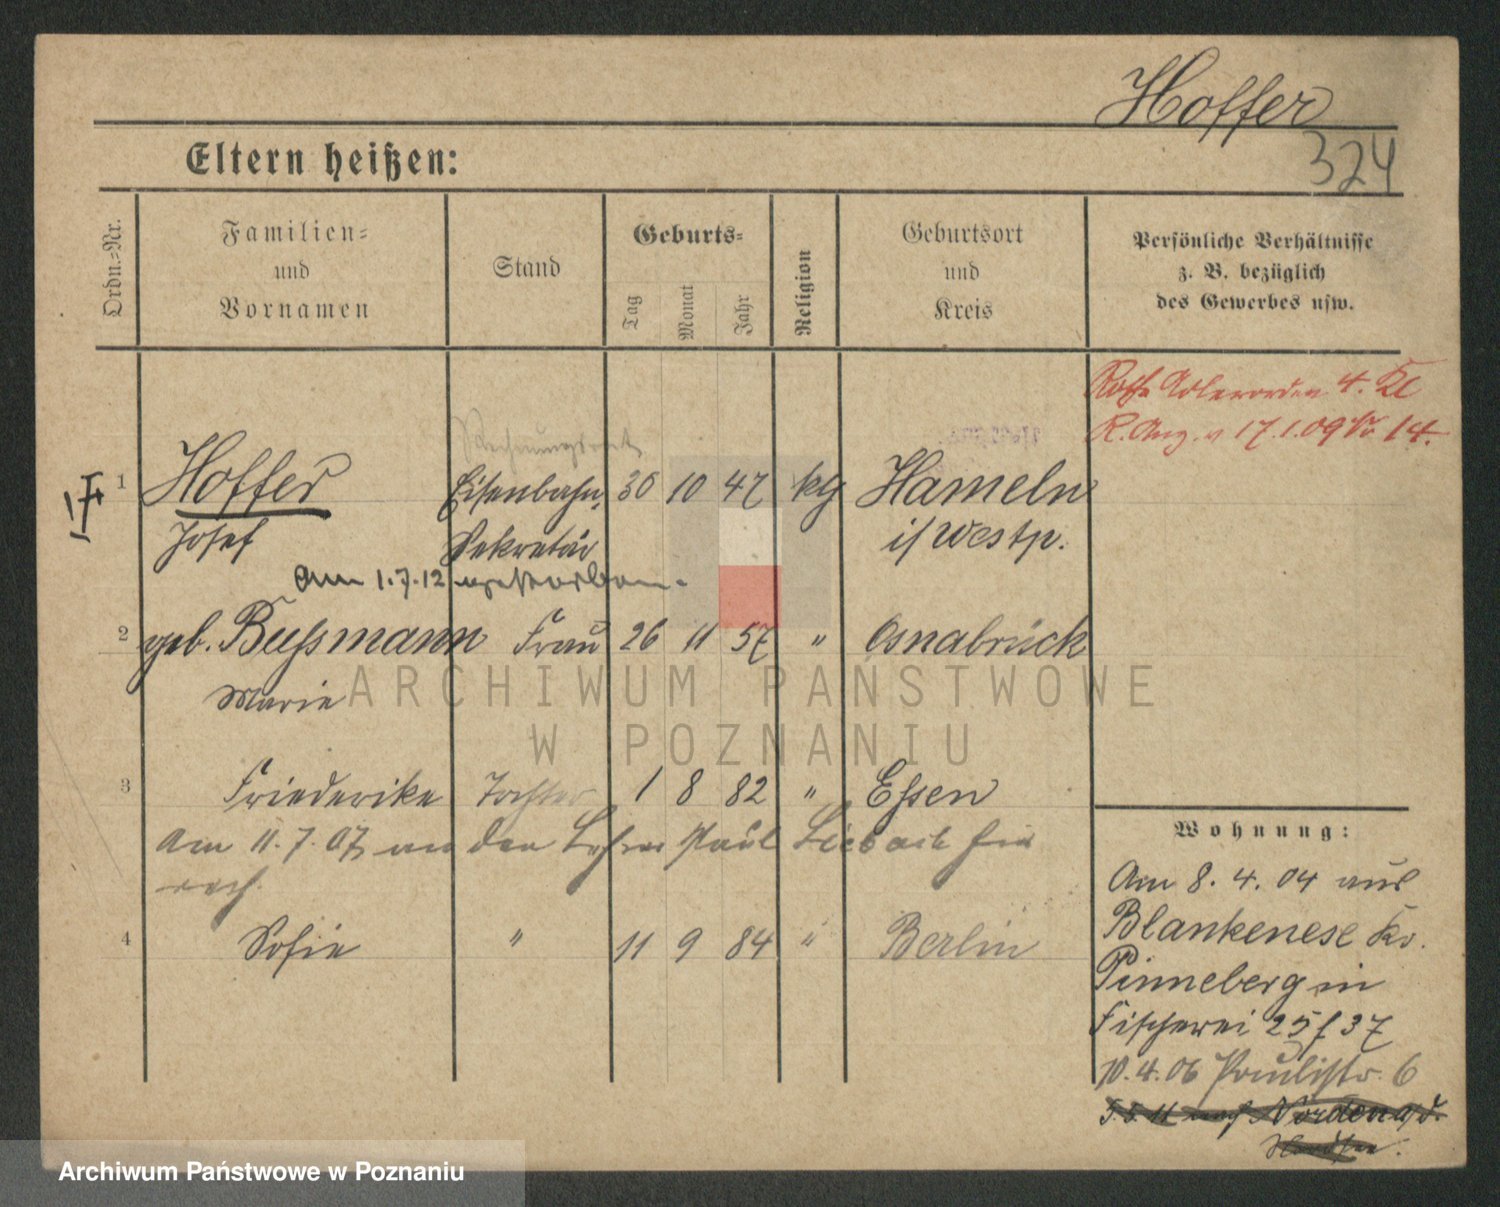 Hoffer
324
Eltern heißen:
Ordn.=Nr.
Familien=
und
Vornamen
Stand
Geburts=
Tag
Monat
Jahr
Religion
Geburtsort
und
Kreis
Persönliche Verhältnisse
z. B. bezüglich
des Gewerbes usw.
Adlerorden 4. Kl
R. Anz. v 17.1.09 No 14.
Rechnungsrat
1 Hoffer Eisenbahn- 30 10 47 kg Hameln
Josef Sekretär i/Westp.
Am 1.7.12 gestorben.
2 geb. Bußmann Frau 26 11 57 " Osnabrück
Marie
3 Friederike Tochter 1 8 82 " Essen
Am 11.7.07 an den Lehrer Paul
4 Sofie " 11 9 84 " Berlin
Wohnung:
Am 8.4.04 aus
Blankenese Kr.
Pinneberg in
Fischerei 25 f 37
10.4.06 Paulistr. 6
5.5.11 nach Norden a/d.
ARCHIWUM PAŃSTWOWE
W POZNANIU
Archiwum Państwowe w Poznaniu